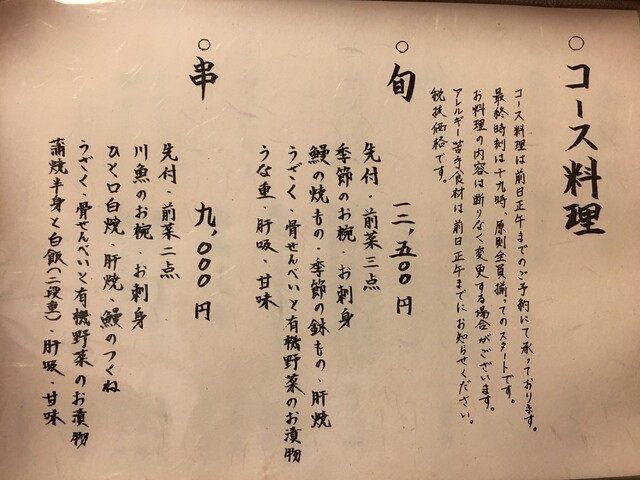 ○ コース料理
コース料理は前日正午までのご予約にて承っております。
最終時刻は十九時、原則全員揃ってのスタートです。
お料理の内容は断りなく変更する場合がございます。
アレルギー苦手食材は前日正午までにお知らせください。
税抜価格です。
○ 旬 一二,五〇〇円
先付・前菜三点
季節のお椀・お刺身
鰻の焼もの・季節の鉢もの・肝焼
うざく・骨せんべいと有機野菜のお漬物
うな重・肝吸・甘味
○ 串 九,〇〇〇円
先付・前菜二点
川魚のお椀・お刺身
ひと口白焼・肝焼・鰻のつくね
うざく・骨せんべいと有機野菜のお漬物
蒲焼半身と白飯(二段重)・肝吸・甘味